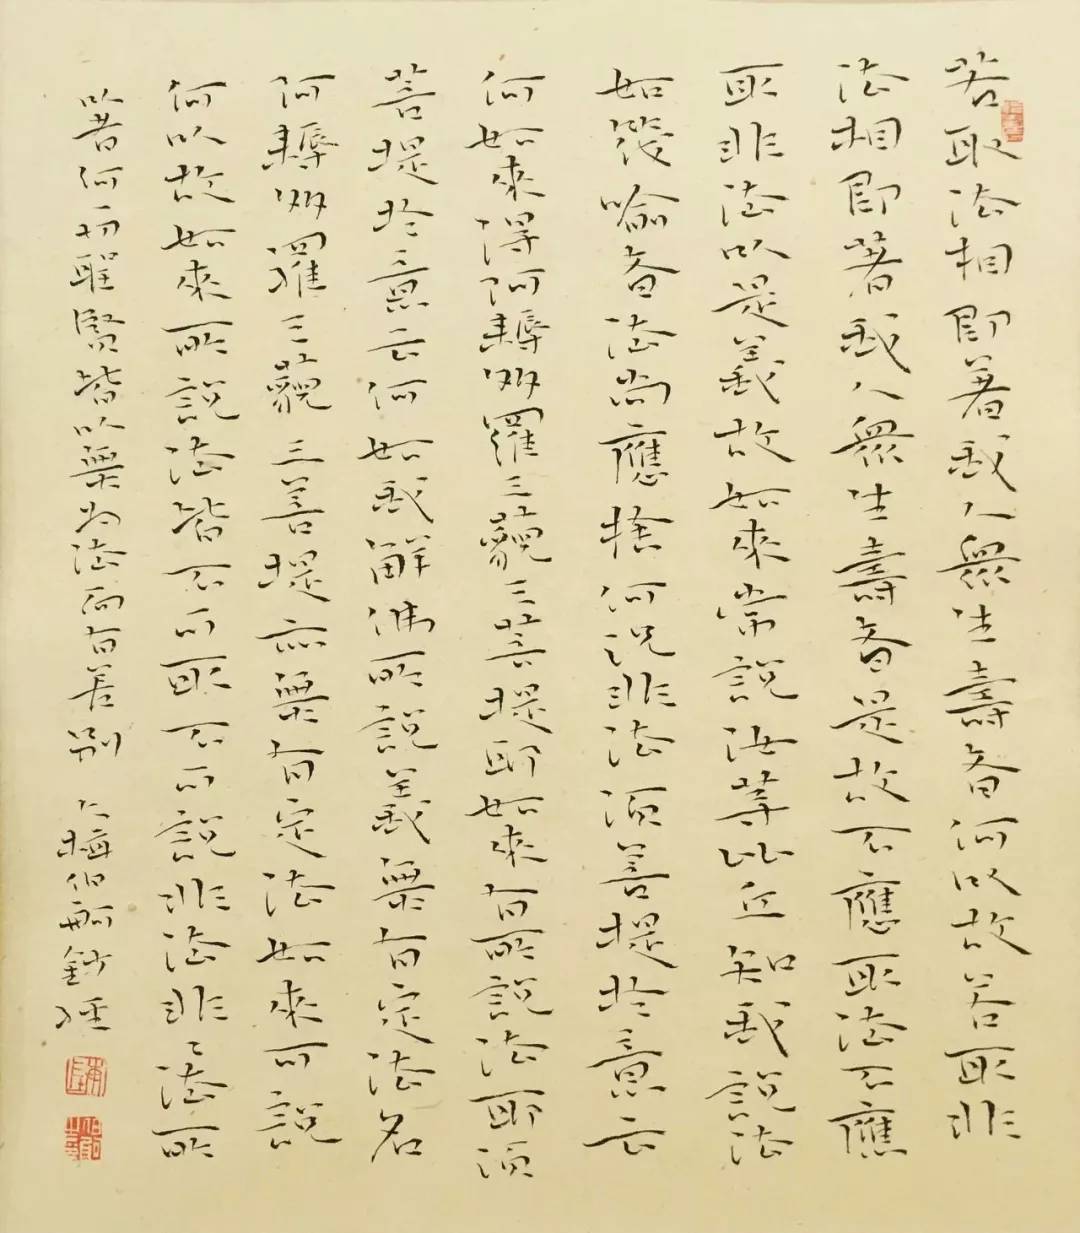 若取法相即著我人眾生壽者何以故若取非
法相即著我人眾生壽者是故不應取法不應
取非法以是義故如來常說汝等比丘知我說法
如筏喻者法尚應捨何況非法須菩提於意云
何如來得阿耨多羅三藐三菩提耶如來有所說法耶須
菩提於意云何如我解佛所說義無有定法名
阿耨多羅三藐三菩提亦無有定法如來可說
何以故如來所說法皆不可取不可說非法非々法所
以者何一切聖賢皆以無為法而有差別 大梅伯舸鈔經